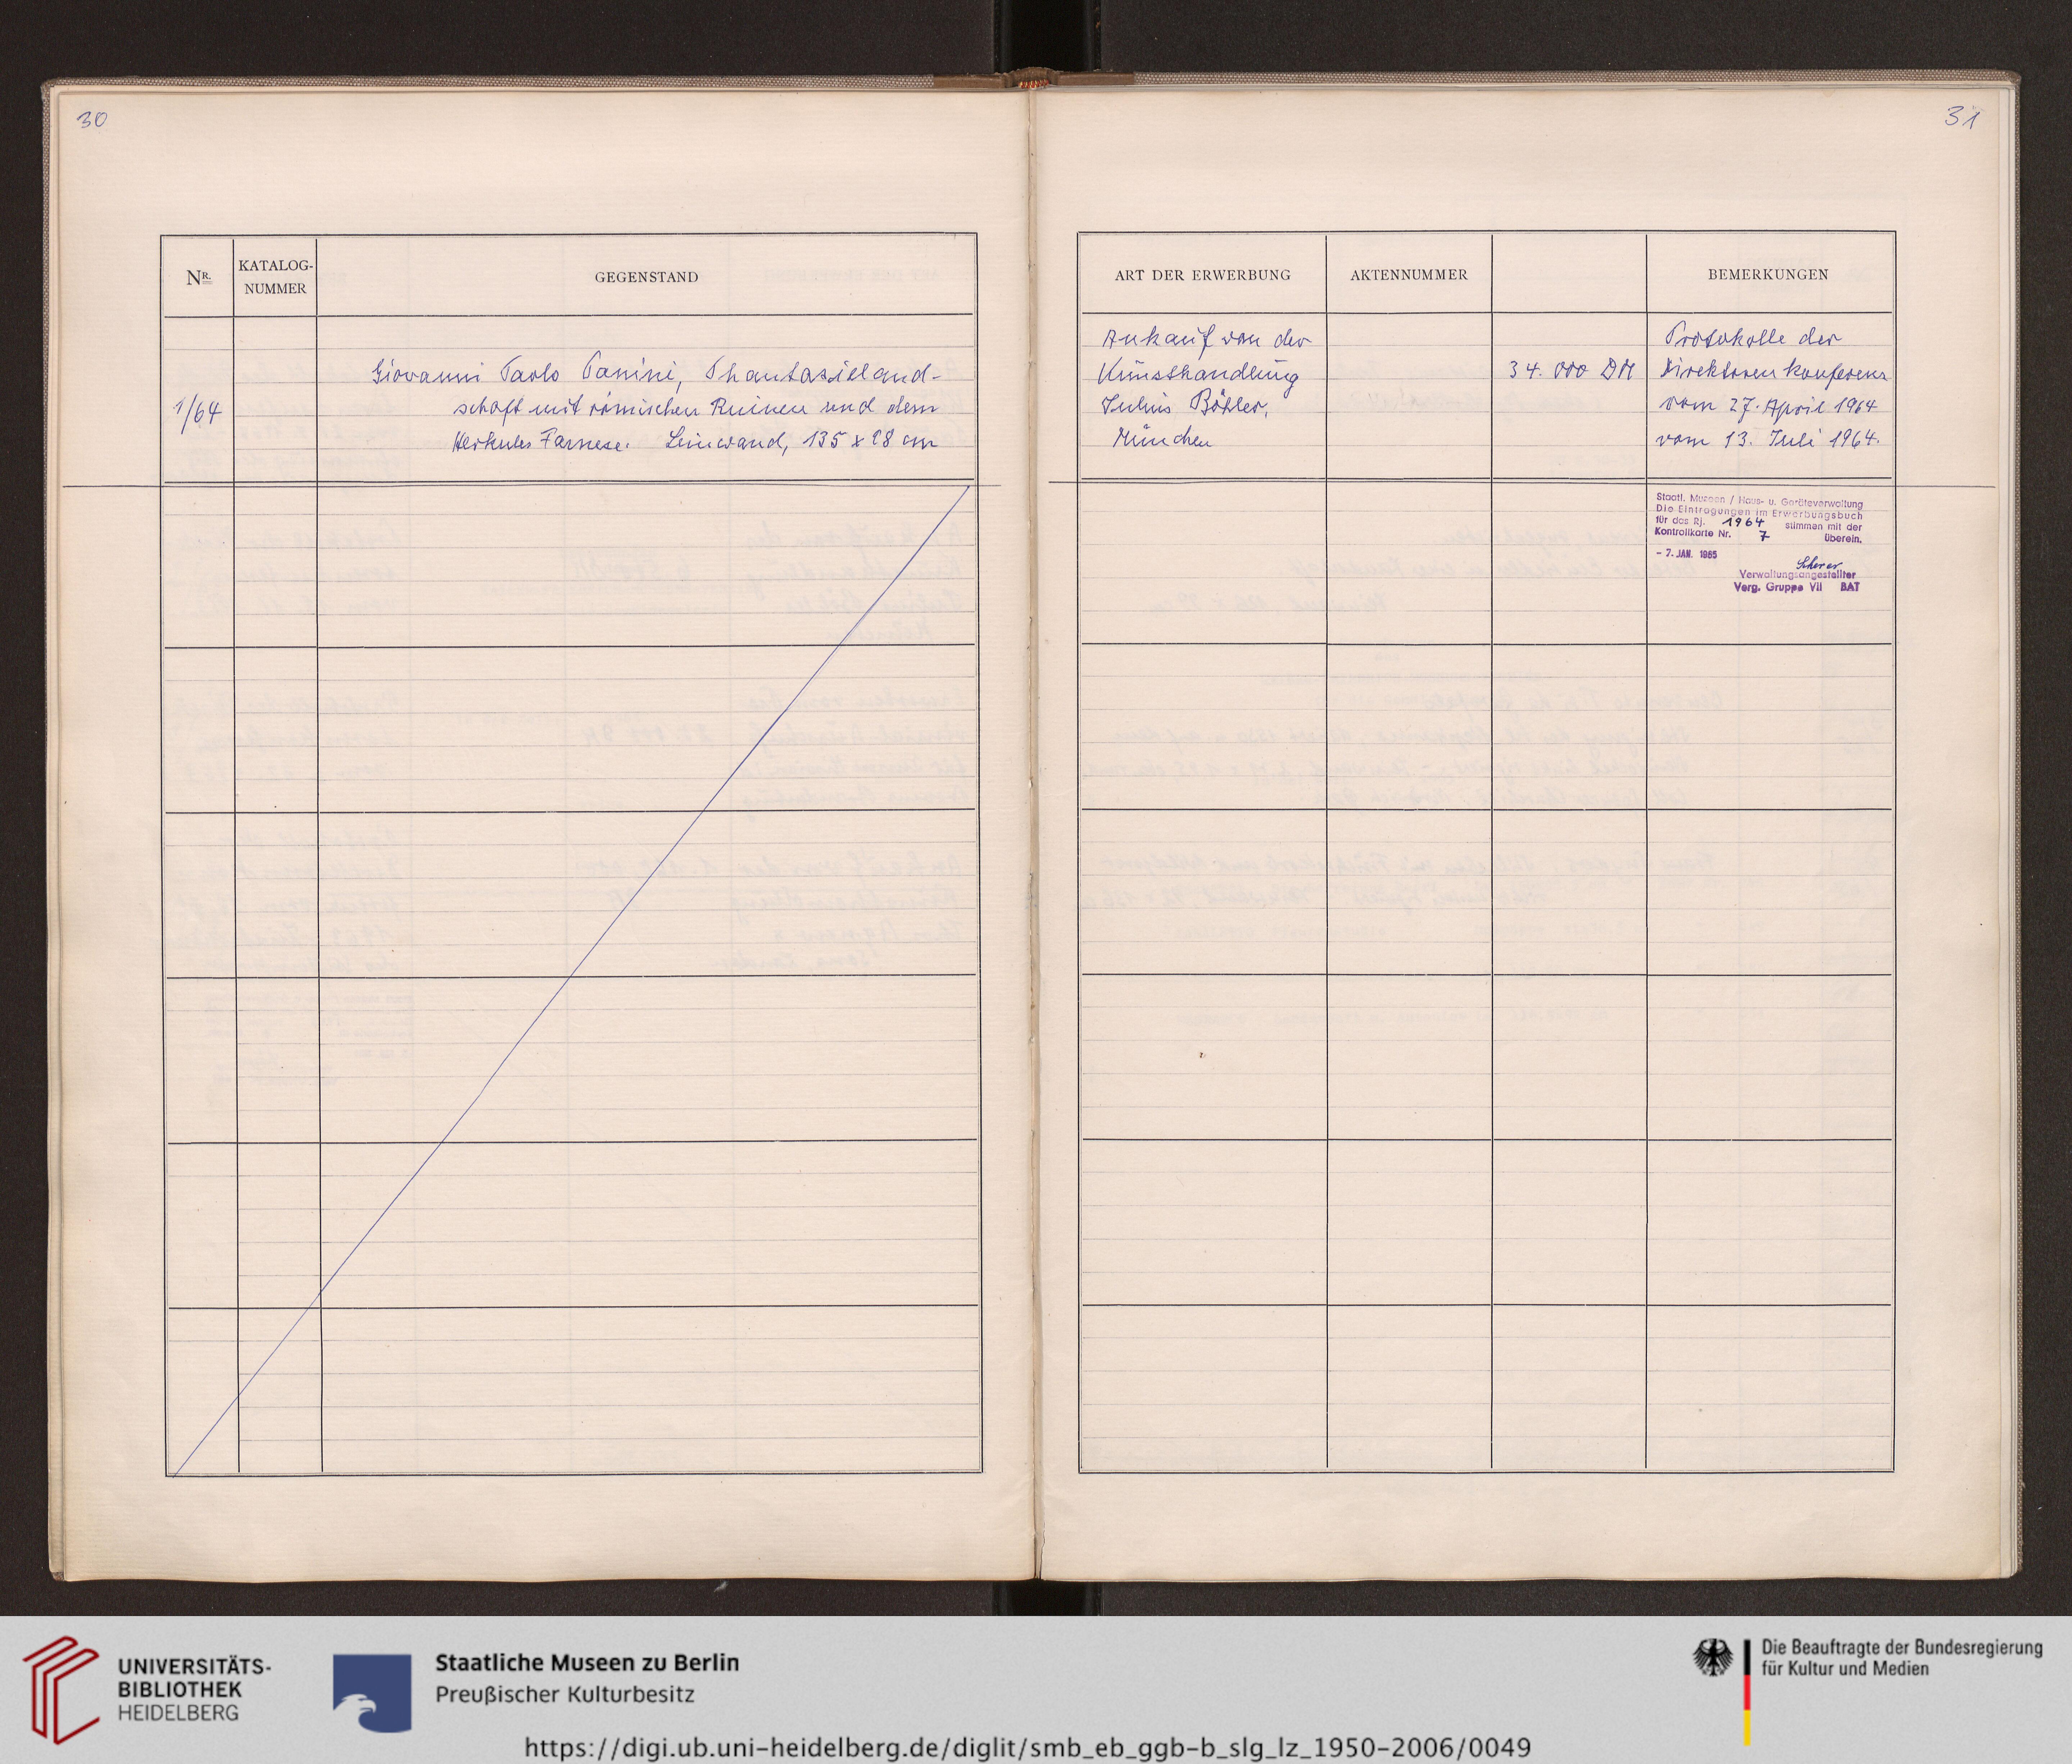 30
Nr.
KATALOG-
NUMMER
GEGENSTAND
1/64
Giovanni Paolo Panini, Phantasieland-
schaft mit römischen Ruinen und dem
Herkules Farnese. Leinwand, 135 x 98 cm
31
ART DER ERWERBUNG
AKTENNUMMER
BEMERKUNGEN
Ankauf von der
Kunsthandlung
Julius Böhler,
München
34.000 DM
Protokolle der
Direktorenkonferenz
vom 27. April 1964
vom 13. Juli 1964.
Staatl. Museen / Haus- u. Geräteverwaltung
Die Eintragungen im Erwerbungsbuch
für das Rj. 1964 stimmen mit der
Kontrollkarte Nr. 7 überein.
- 7. JAN. 1965
Scherer
Verwaltungsangestellter
Verg. Gruppe VII BAT
UNIVERSITÄTS-
BIBLIOTHEK
HEIDELBERG
Staatliche Museen zu Berlin
Preußischer Kulturbesitz
Die Beauftragte der Bundesregierung
für Kultur und Medien
https://digi.ub.uni-heidelberg.de/diglit/smb_eb_ggb-b_slg_lz_1950-2006/0049